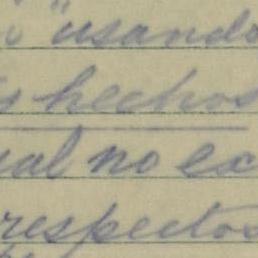 "usando
s hechos
ual no ex
respectos